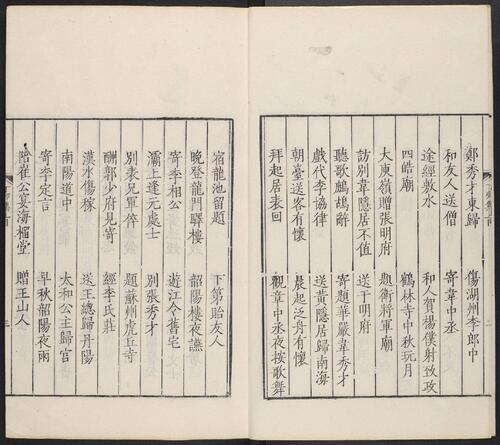 鄭秀才東歸　傷湖州李郎中
和友人送僧　寄韋中丞
途經敷水　和人賀楊僕射致政
四皓廟　鶴林寺中秋玩月
大庾嶺贈張明府　題衛將軍廟
訪別韋隱居不值　送于明府
聽歌鷓鴣辭　寄題華嚴韋秀才
戲代李協律　送黃隱居歸南海
朝臺送客有懷　晨起泛舟有懷
拜起居表回　觀章中丞夜按歌舞
宿龍池留題　下第貽友人
晚登龍門驛樓　韶陽樓夜讌
寄李相公　遊江令舊宅
灞上逢元處士　別張秀才
別表兄軍倅　題蘇州虎丘寺
酬郭少府見寄　經李氏莊
漢水傷稼　送王總歸丹陽
南陽道中　太和公主歸宮
寄李定言　早秋韶陽夜雨
陪崔公宴海榴堂　贈王山人
三